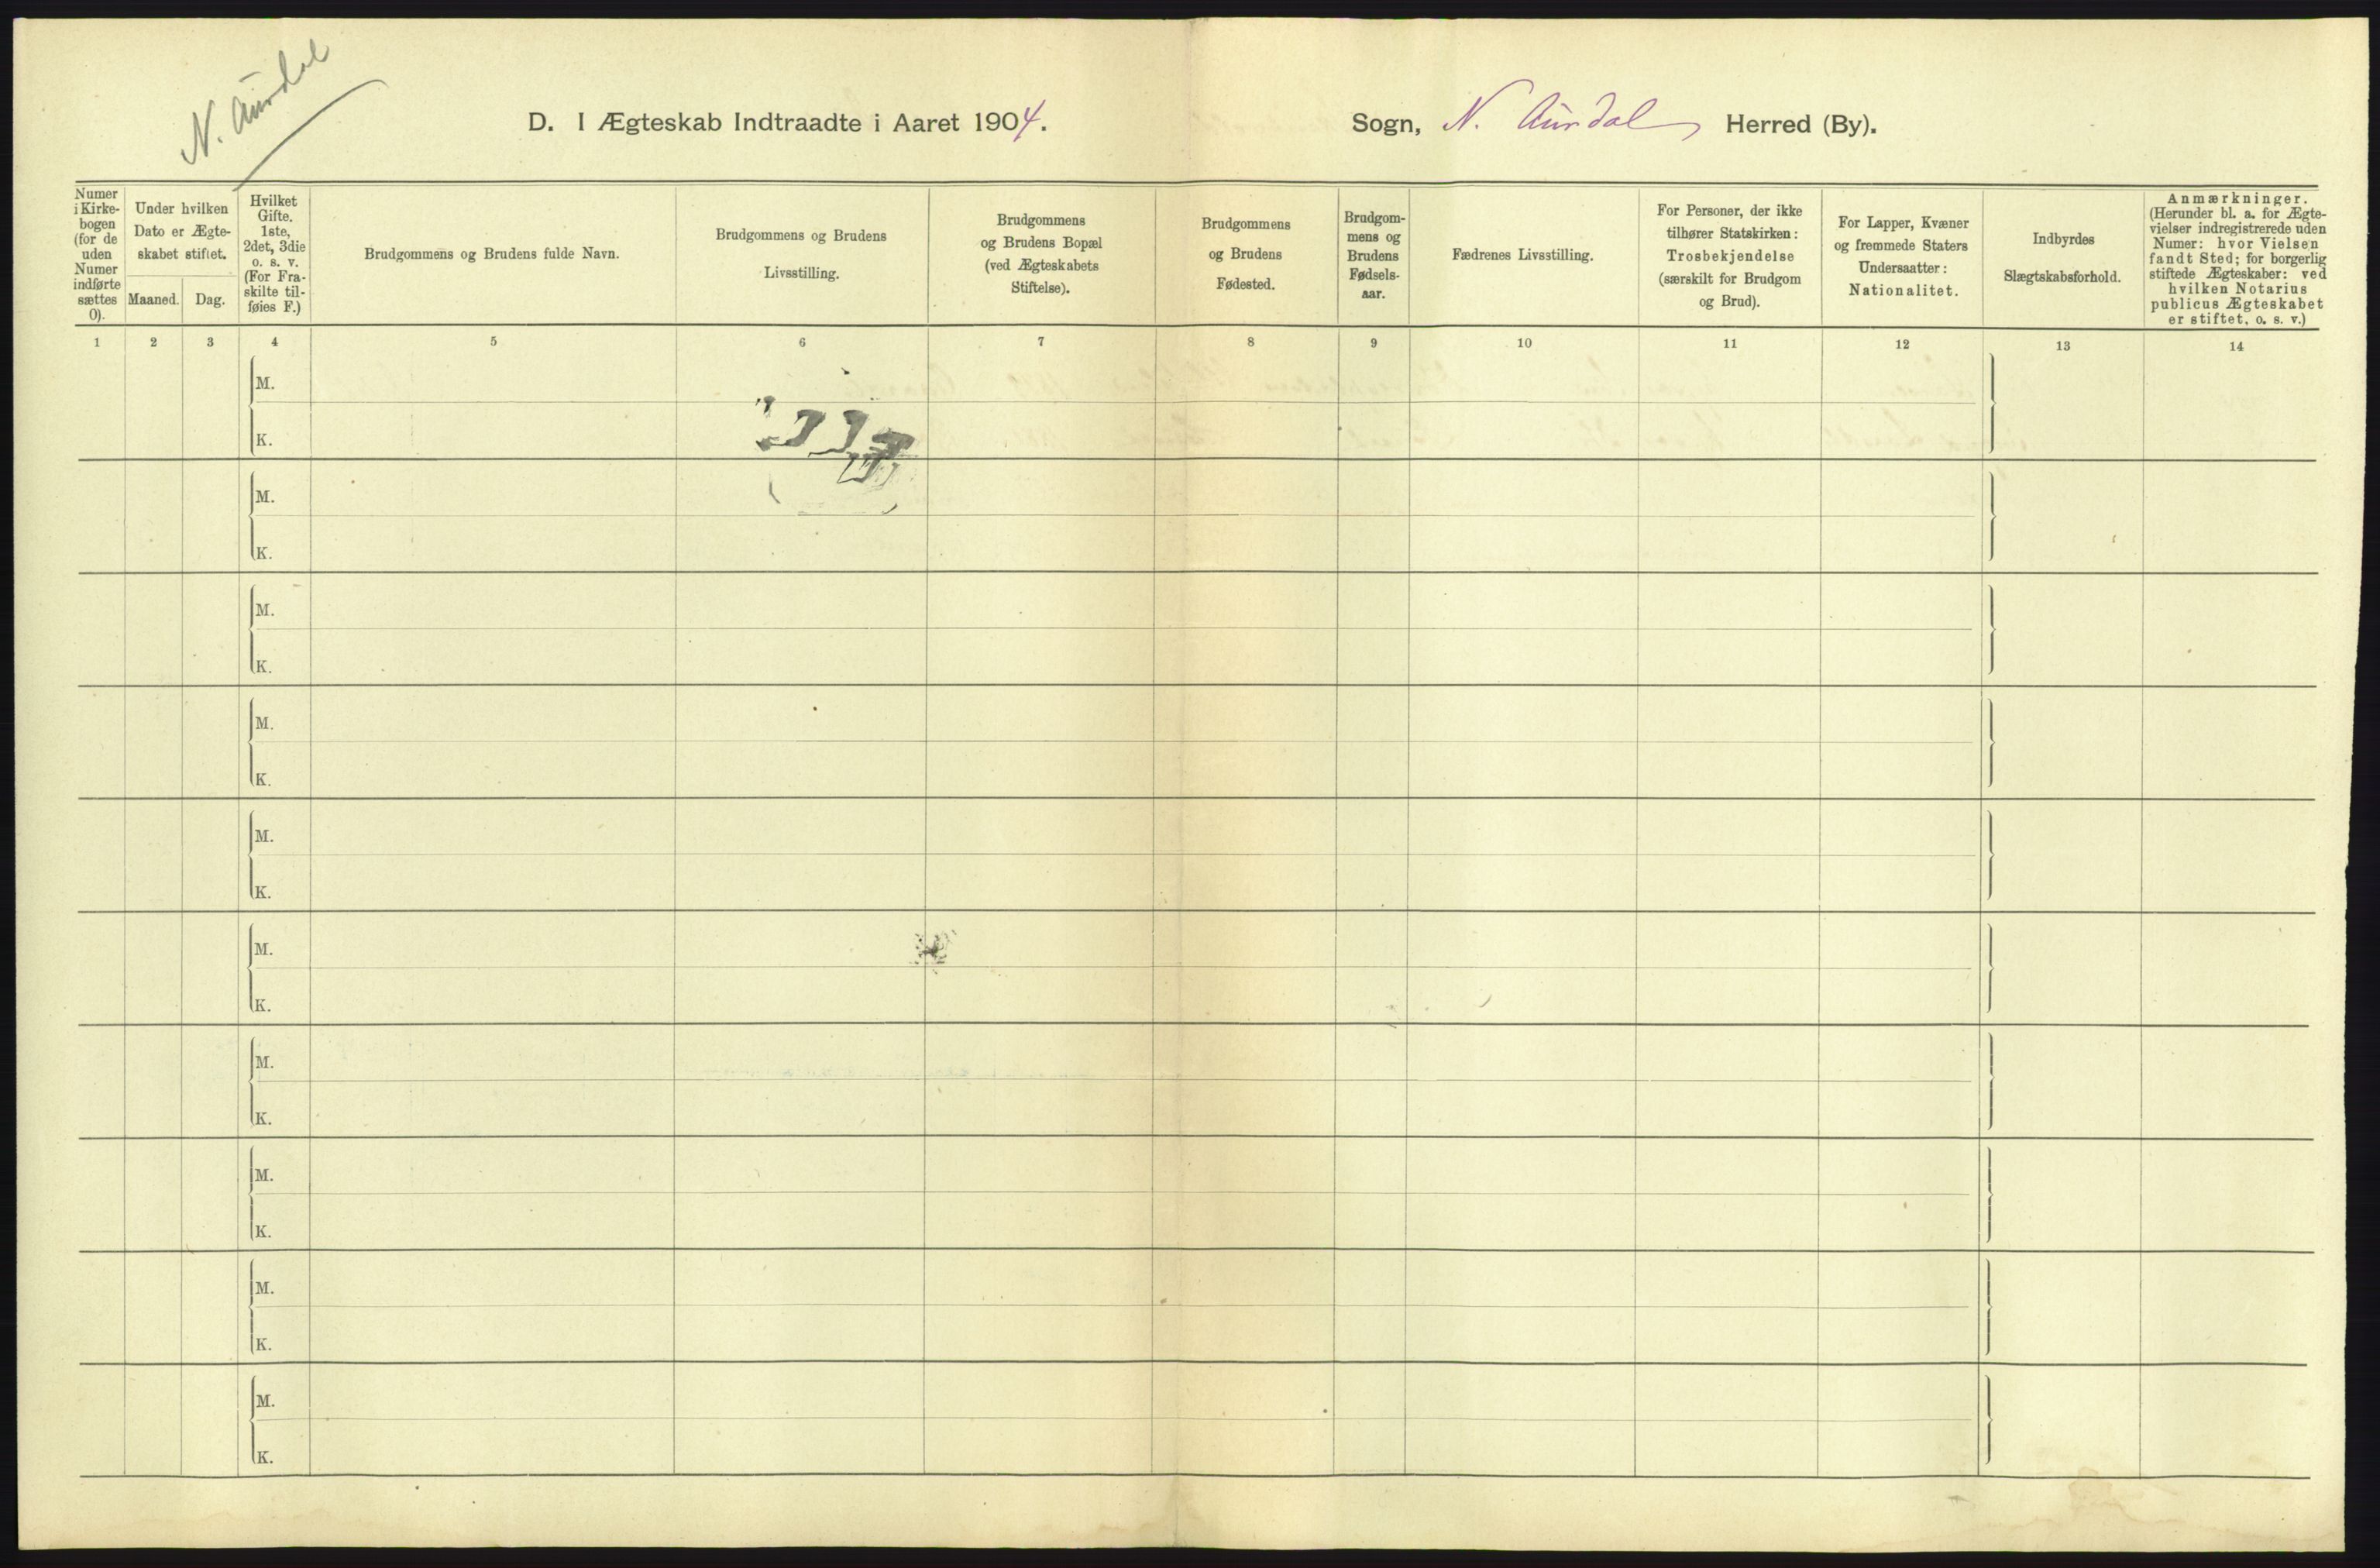 N. Aurdal
D. I Ægteskab Indtraadte i Aaret 1904.
Sogn, N. Aurdal Herred (By).
Numer
i Kirke-
bogen
(for de
uden
Numer
indførte
sættes
0).
Under hvilken
Dato er Ægte-
skabet stiftet.
Maaned.
Dag.
Hvilket
Gifte.
1ste,
2det, 3die
o. s. v.
(For Fra-
skilte til-
føies F.)
Brudgommens og Brudens fulde Navn.
Brudgommens og Brudens
Livsstilling.
Brudgommens
og Brudens Bopæl
(ved Ægteskabets
Stiftelse).
Brudgommens
og Brudens
Fødested.
Brudgom-
mens og
Brudens
Fødsels-
aar.
Fædrenes Livsstilling.
For Personer, der ikke
tilhører Statskirken:
Trosbekjendelse
(særskilt for Brudgom
og Brud).
For Lapper, Kvæner
og fremmede Staters
Undersaatter:
Nationalitet.
Indbyrdes
Slægtskabsforhold.
Anmærkninger.
(Herunder bl. a. for Ægte-
vielser indregistrerede uden
Numer: hvor Vielsen
fandt Sted; for borgerlig
stiftede Ægteskaber: ved
hvilken Notarius
publicus Ægteskabet
er stiftet, o. s. v.)
1 2 3 4 5 6 7 8 9 10 11 12 13 14
M.
K.
M.
K.
M.
K.
M.
K.
M.
K.
M.
K.
M.
K.
M.
K.
M.
K.
M.
K.